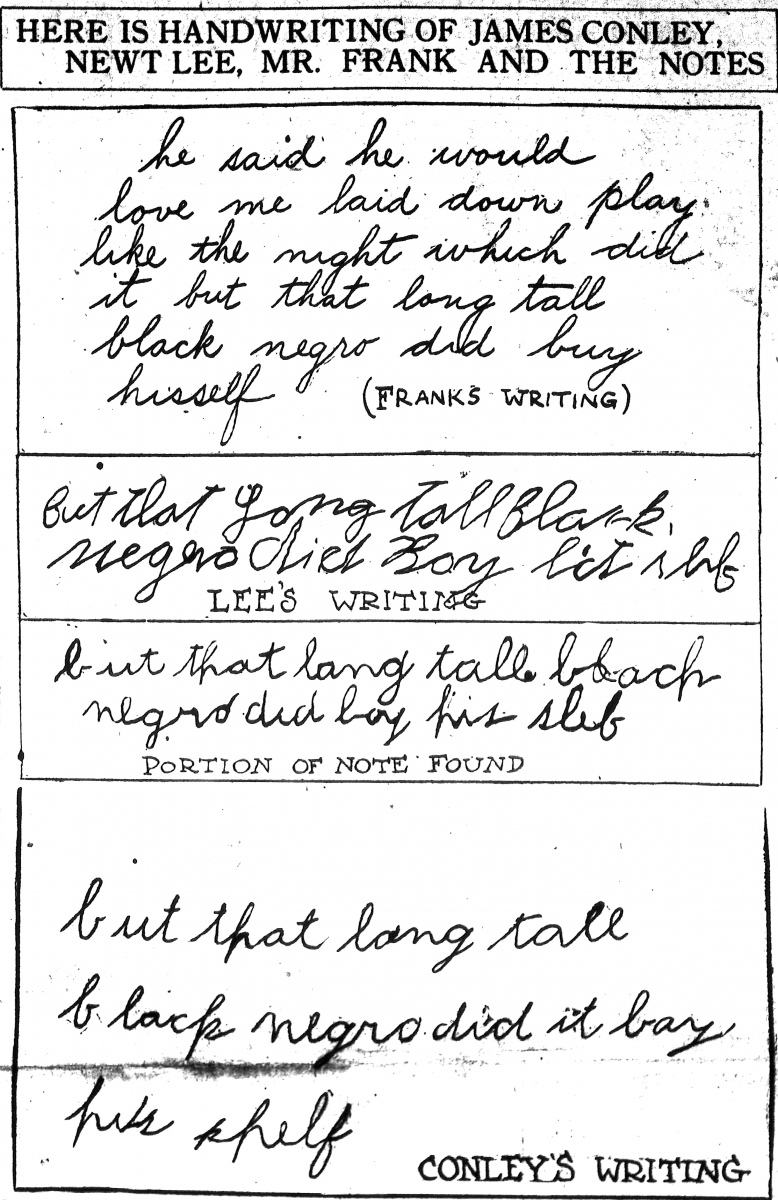 HERE IS HANDWRITING OF JAMES CONLEY,
NEWT LEE, MR. FRANK AND THE NOTES
he said he would
love me laid down play
like the night which did
it but that long tall
black negro did buy
hisself (FRANKS WRITING)
But that Long tall Black
negro died Boy
LEE'S WRITING
but that long tall black
negro did boy his sleb
PORTION OF NOTE FOUND
but that long tall
black negro did it bay
his shelf
CONLEY'S WRITING